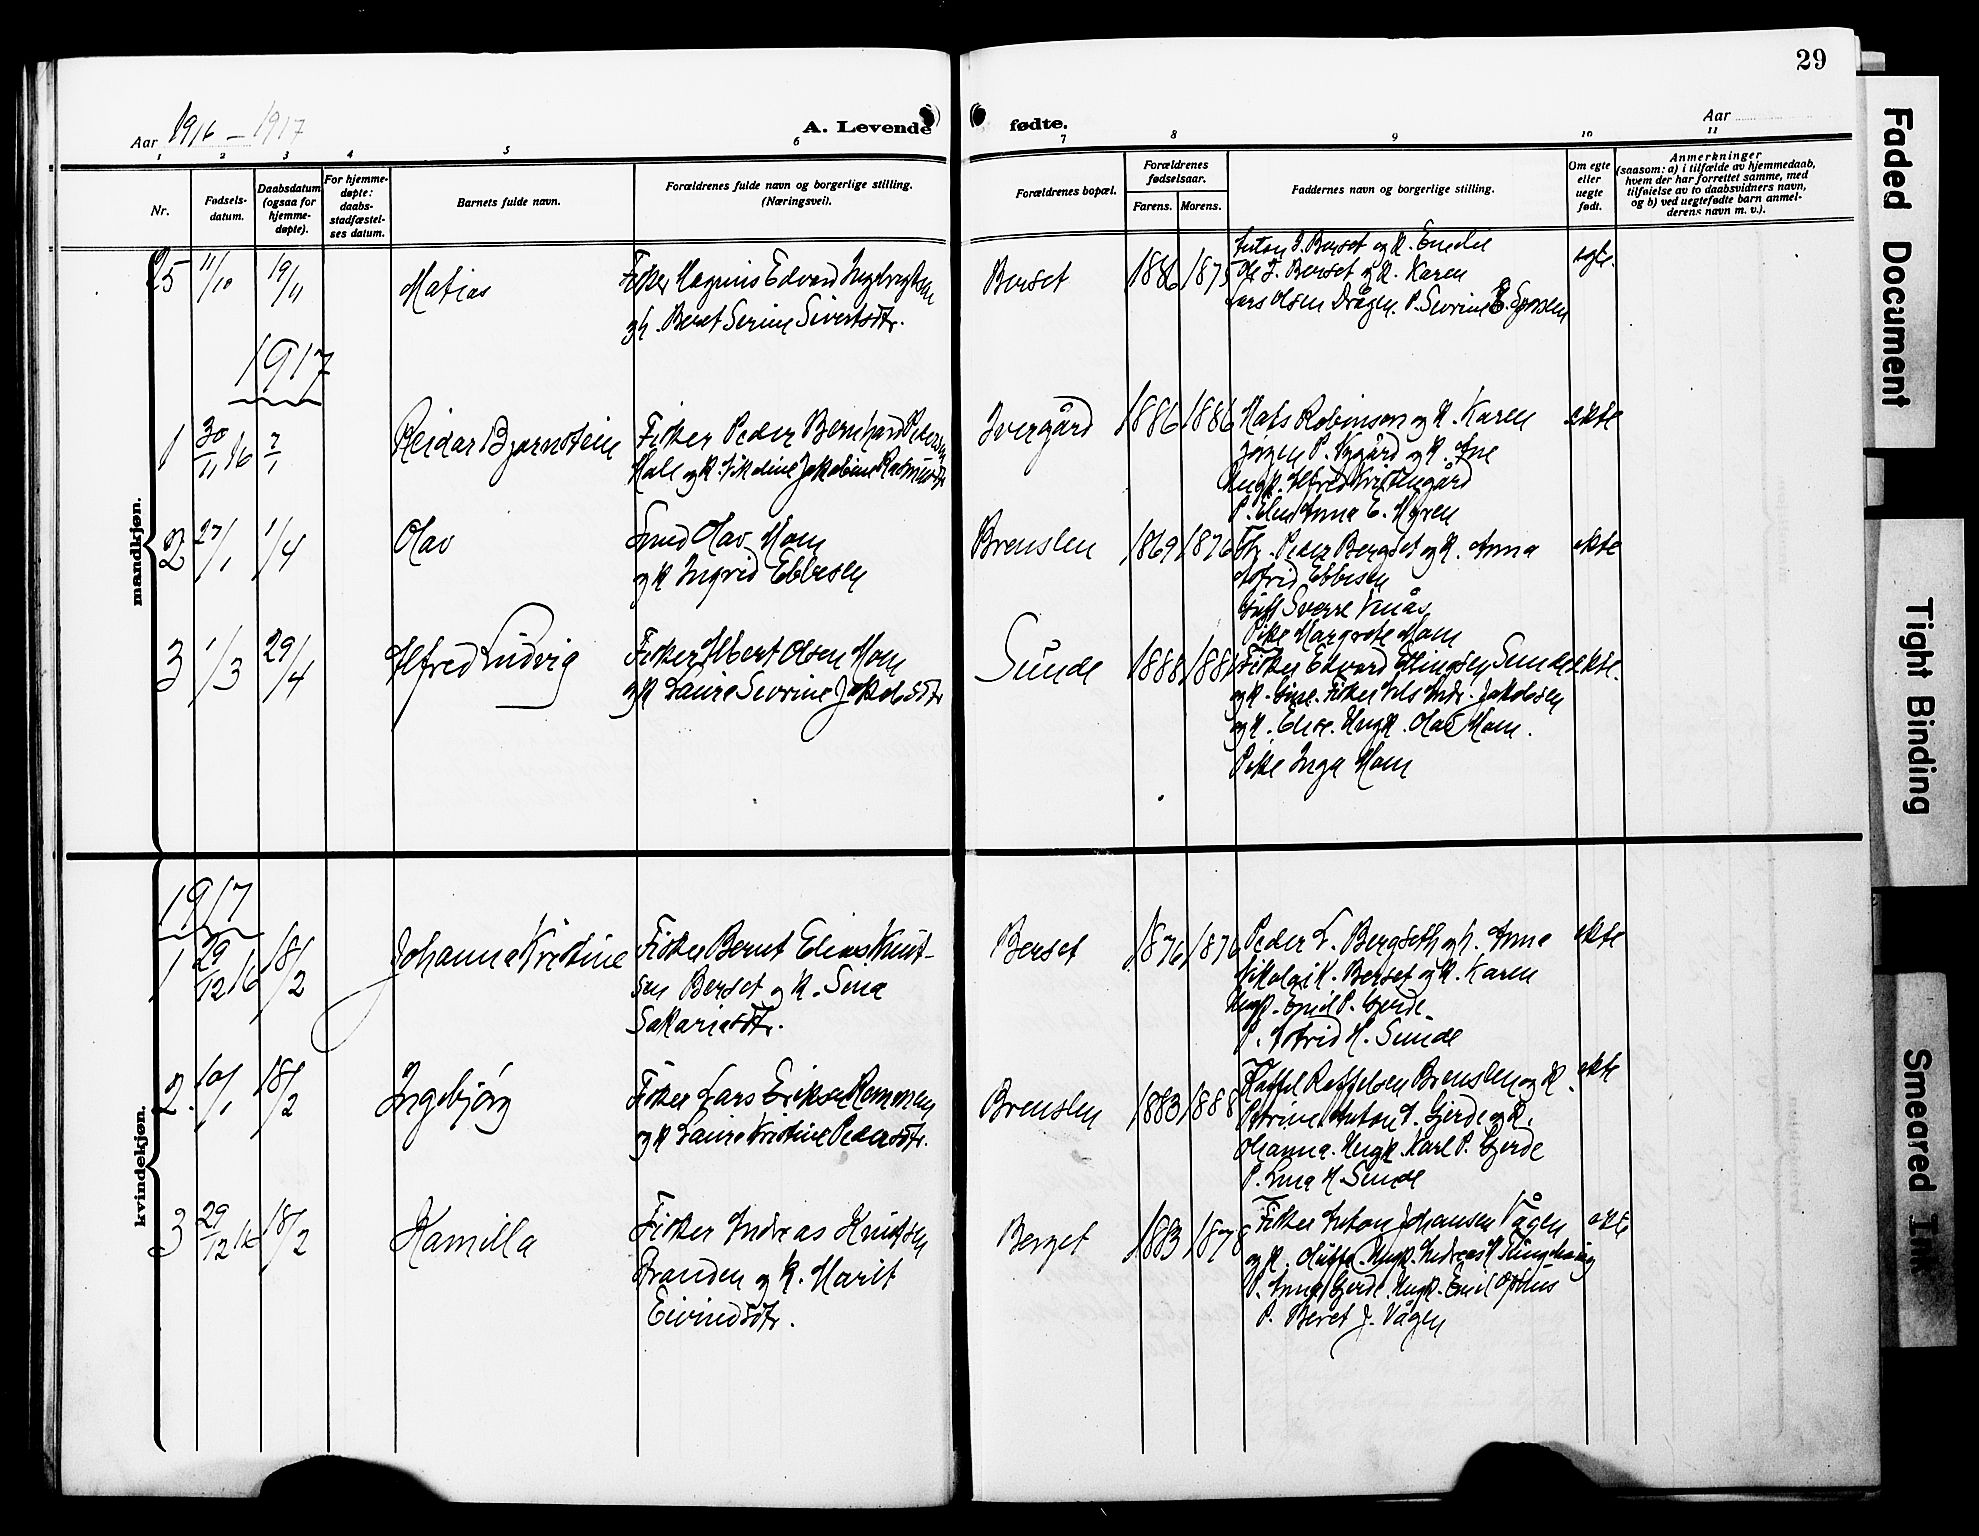 29
Aar 1916 – 1917
A. Levende fødte.
Aar
1 2 3 4 5 6 7 8 9 10 11
Nr.
Fødsels-
datum.
Daabsdatum
(ogsaa for
hjemme-
døpte).
For hjemme-
døpte:
daabs-
stadfæstel-
ses datum.
Barnets fulde navn.
Forældrenes fulde navn og borgerlige stilling.
(Næringsvei).
Forældrenes bopæl.
Forældrenes
fødselsaar.
Farens. Morens.
Faddernes navn og borgerlige stilling.
Om egte
eller
uegte
født.
Anmerkninger
(saasom: a) i tilfælde av hjemmedaab,
hvem der har forrettet samme, med
tilføielse av to daabsvidners navn,
og b) ved uegtefødte barn anmel-
derens navn m. v.).
mandkjøn.
25 11/10 19/11 Matias
Fisker Magnus Edvard Ingebrigtsen
og h. Beret Serine Sivertsdtr.
Berset 1886 1875
Anton J. Berset og k. Emelie
Ole J. Berset og k. Karen
Lars Olsen Drågen. P. Sevrine
egte.
1917
1 30/11 16 7/1 Reidar Bjarnstein
Fisker Peder Bernhard Pedersen
Male og k. Nikoline Jakobine Rasmusdtr
Ivergård 1886 1886
Mats Robinson og k. Karen
Jørgen P. Nygård og k. Ane
Ungk. Alfred Kristengård
P. Anna E. Myren
ekte
2 27/1 1/4 Olav
Smed Olav Hom
og k Ingrid Ebbesen
Brenslen 1869 1876
Peder Bergset og k. Anna
Astrid Ebbesen
Sverre Knås
Pike Margrete Hom
ekte
3 1/3 29/4 Alfred Ludvig
Fisker Albert Olsen Hom
og k Laura Sevrine Jakobsdtr
Sunde 1888 188
Fisker Edvard Ellingsen Sunde
og k. Gine. Fisker Nils Andr. Jakobsen
og k. Elise. Ungk. Olav Hom.
Pike Inga Hom
ekte.
kvindekjøn.
1917
1 29/12 16 18/2 Johanna Kristine
Fisker Bernt Elias Knut-
sen Berset og k. Sina
Sakariasdtr.
Berset 1876 1876
Peder L. Bergseth og h. Anna
Nikolai K. Berset og k. Karen
Ungk. Emil P. Gjerde
P. Astrid H. Sunde
ekte
2. 10/1 18/2 Ingebjørg
Fisker Lars Eriksen Hemmen
og k Laura Kristine Pedersdtr.
Brenslen 1883 1888
Raffel Raffelsen Brenslen og k.
Petrine. Anton A. Gjerde og k.
Johanna. Ungk. Karl P. Gjerde
P. Anna H Sunde
ekte
3 29/12 16 18/2 Kamilla
Fisker Andreas Knutsen
Stranden og k. Marit
Eivindsdtr.
Berget 1883 1878
Fisker Anton Johansen Vågen
og k. Ungk. Andreas H
P. Anna Gjerde. Ungk. Emil
P. Beret J. Vågen
ekte
Faded Document
Tight Binding
Smeared Ink